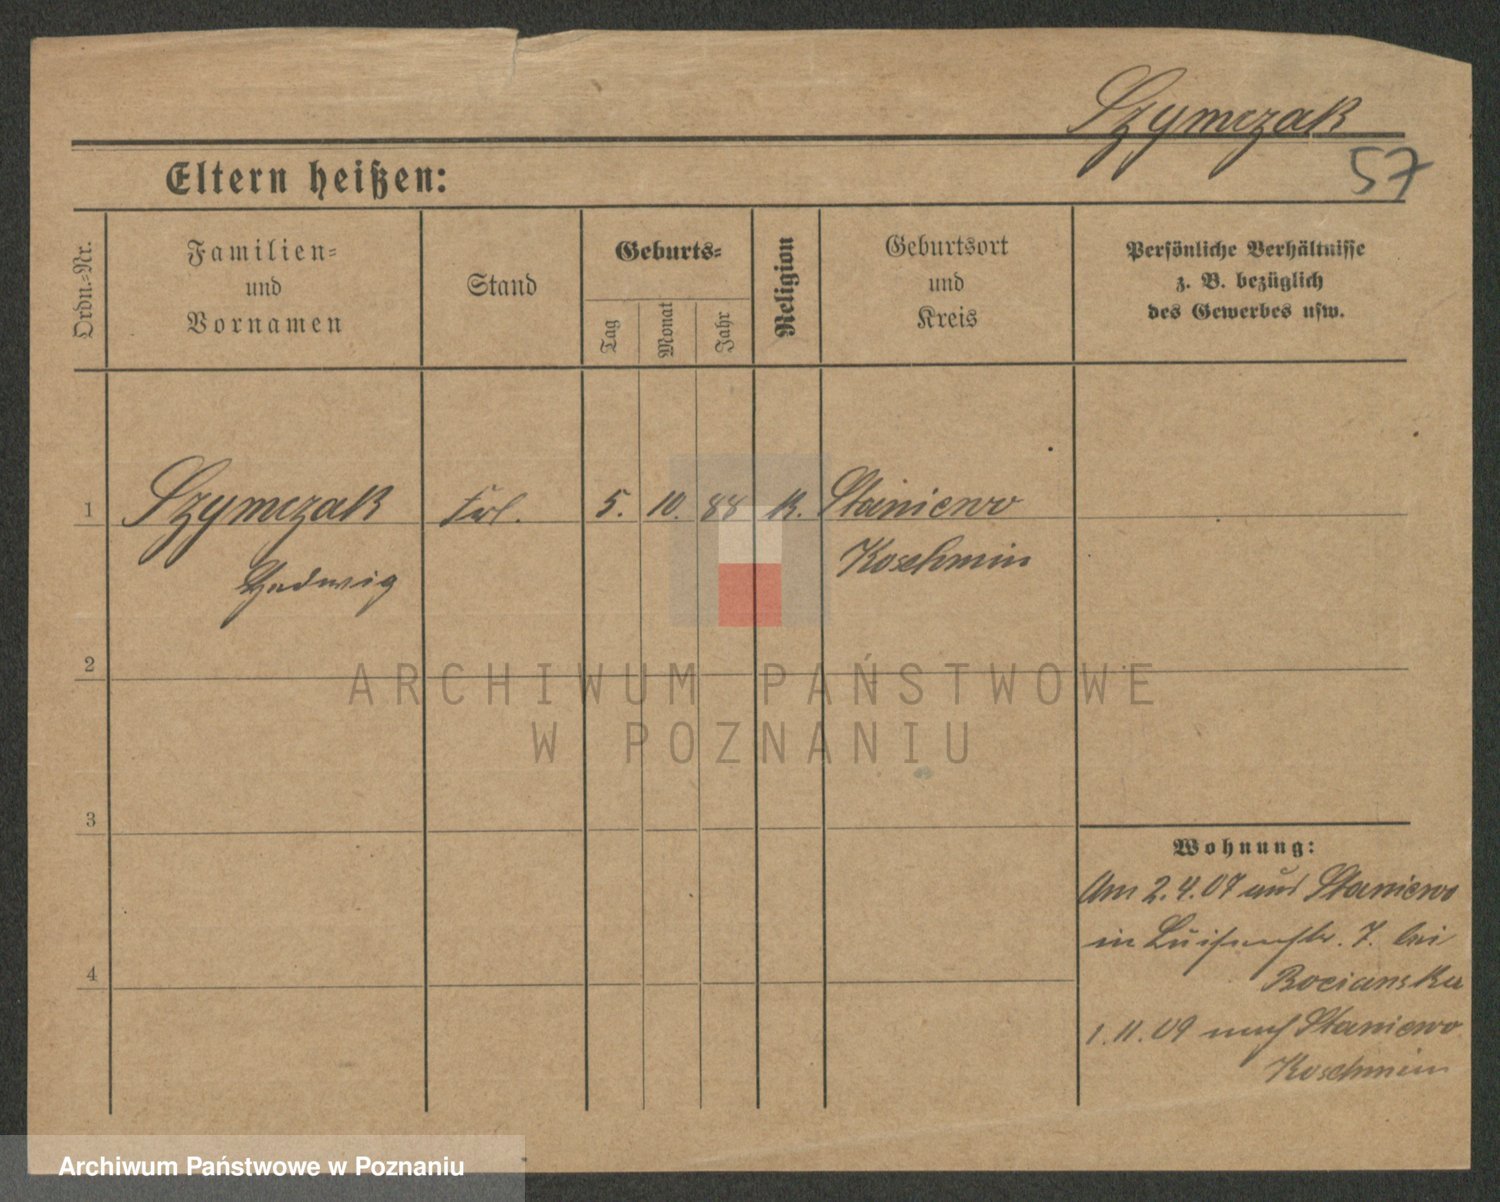 Szymczak
57
Eltern heißen:
Ordn.-Nr.
Familien-
und
Vornamen
Stand
Geburts-
Tag
Monat
Jahr
Religion
Geburtsort
und
Kreis
Persönliche Verhältnisse
z. B. bezüglich
des Gewerbes usw.
1 Szymczak Frl. 5. 10. 88 K. Staniewo
Hedwig Koschmin
2
3
4
Wohnung:
Am 2.4.07 aus Staniewo
in Luisenstr. 7. bei
Bocianska
1.11.09 nach Staniewo
Koschmin
ARCHIWUM PAŃSTWOWE
W POZNANIU
Archiwum Państwowe w Poznaniu